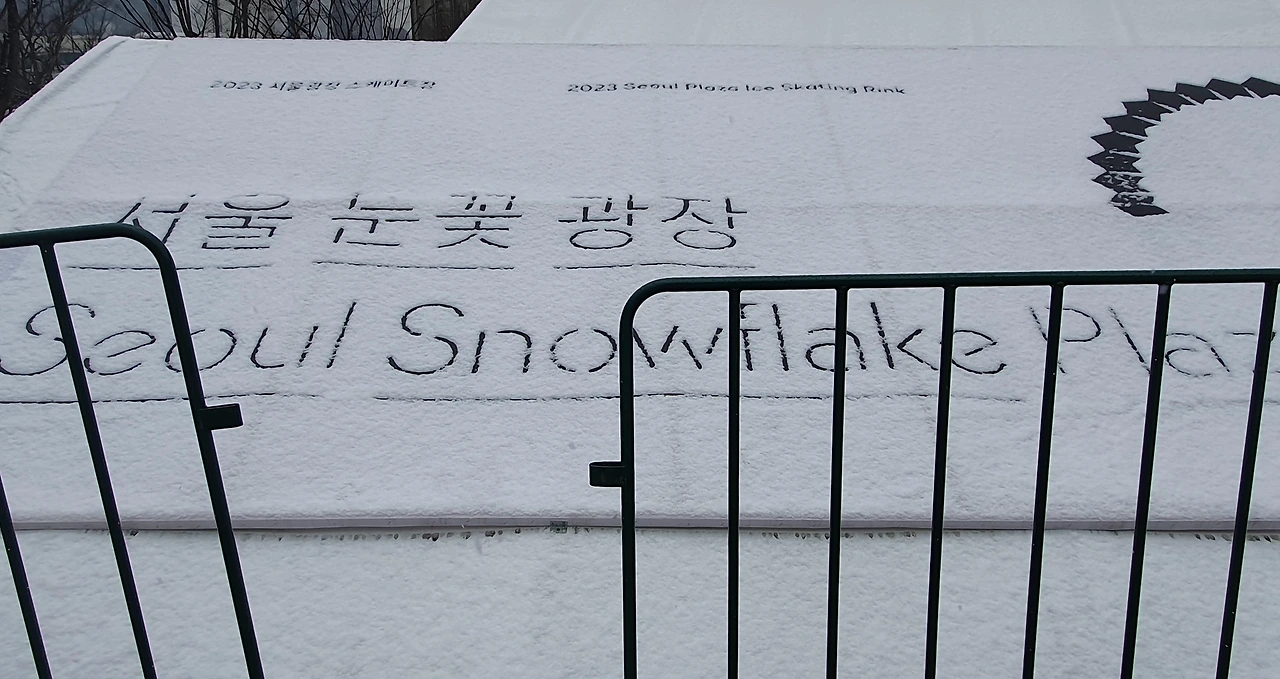 2023 서울광장 스케이트장 2023 Seoul Plaza Ice Skating Rink
서울 눈꽃 광장
Seoul Snowflake Plaz